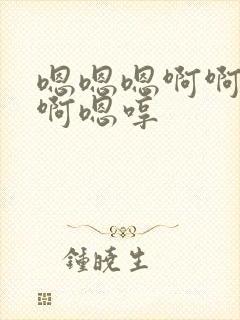 嗯嗯嗯啊啊
啊嗯哼
鍾曉生